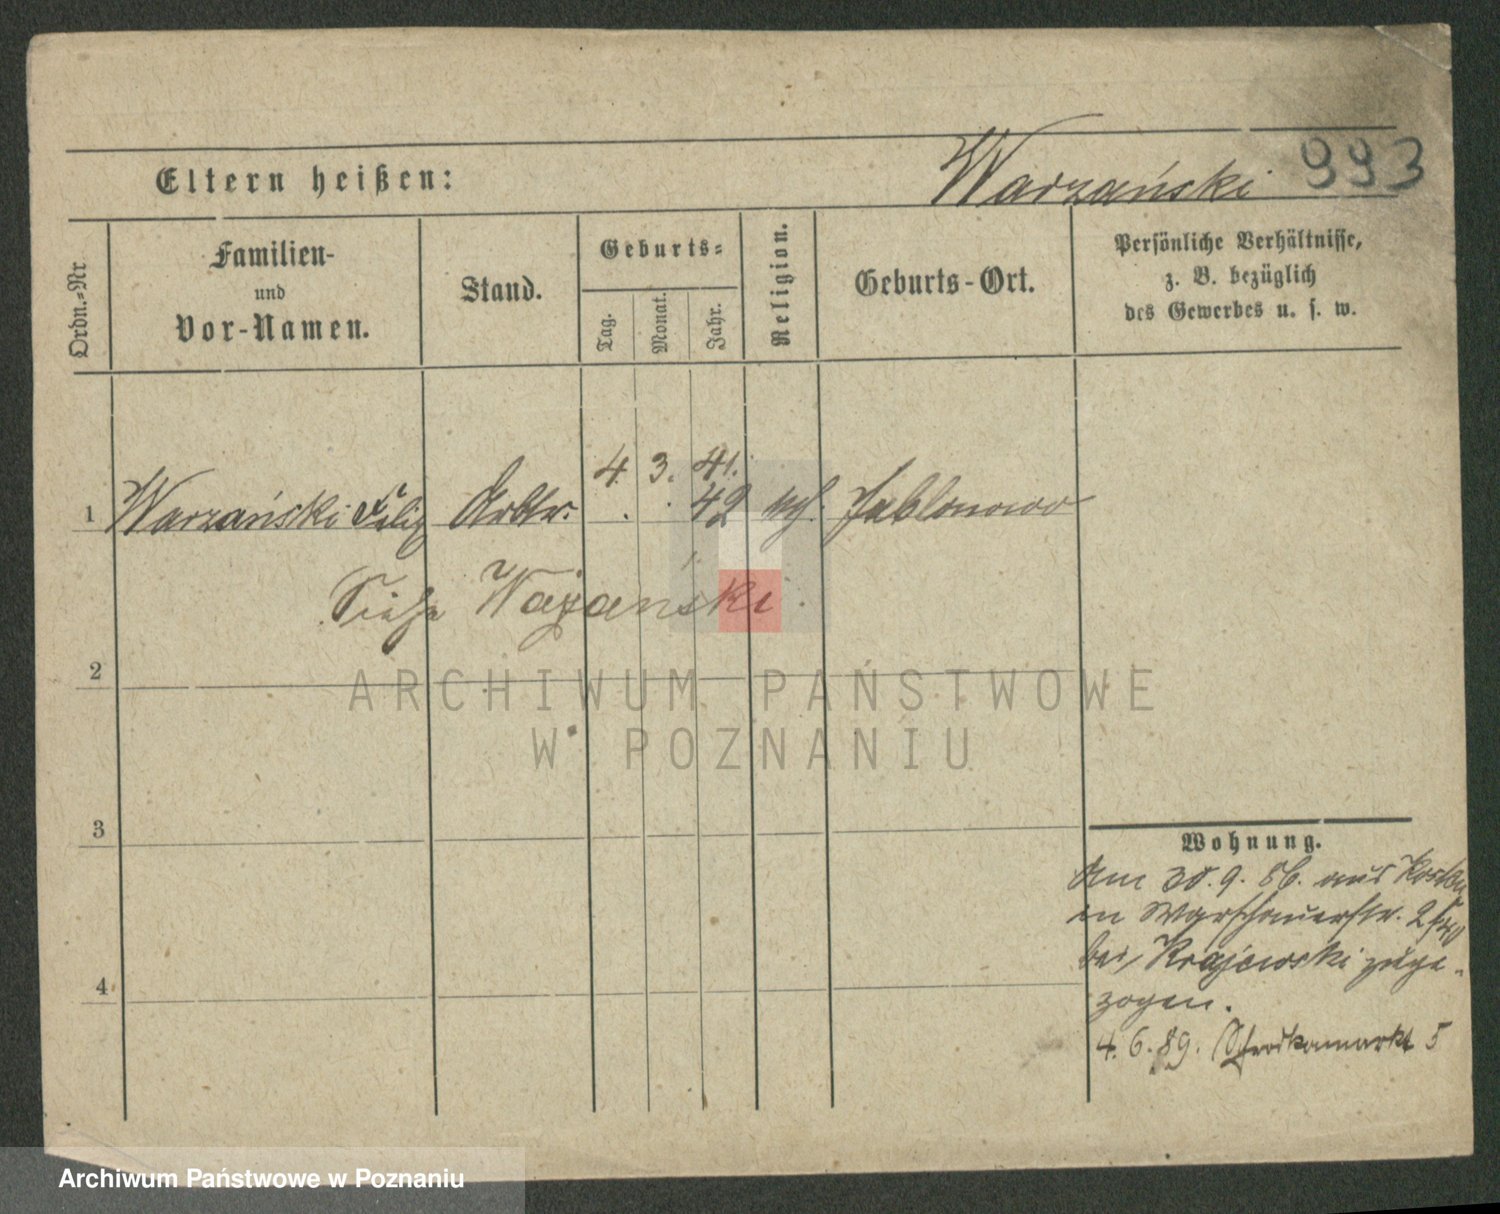 Eltern heißen:
Warzański 993
Ordn.=Nr
Familien-
und
Vor-Namen.
Stand.
Geburts=
Tag.
Monat.
Jahr.
Religion.
Geburts-Ort.
Persönliche Verhältnisse,
z. B. bezüglich
des Gewerbes u. s. w.
4. 3. 41.
1 Warzański Felix Arbtr. 42 kth. Jablonowo
SieheWażański.
2
ARCHIWUM PAŃSTWOWE
W POZNANIU
3
4
Wohnung.
Am 30. 9. 86. aus Kosten
in Warschauerstr.
bei Krajewski zuge-
zogen.
4. 6. 89. Schrodkamarkt 5
Archiwum Państwowe w Poznaniu